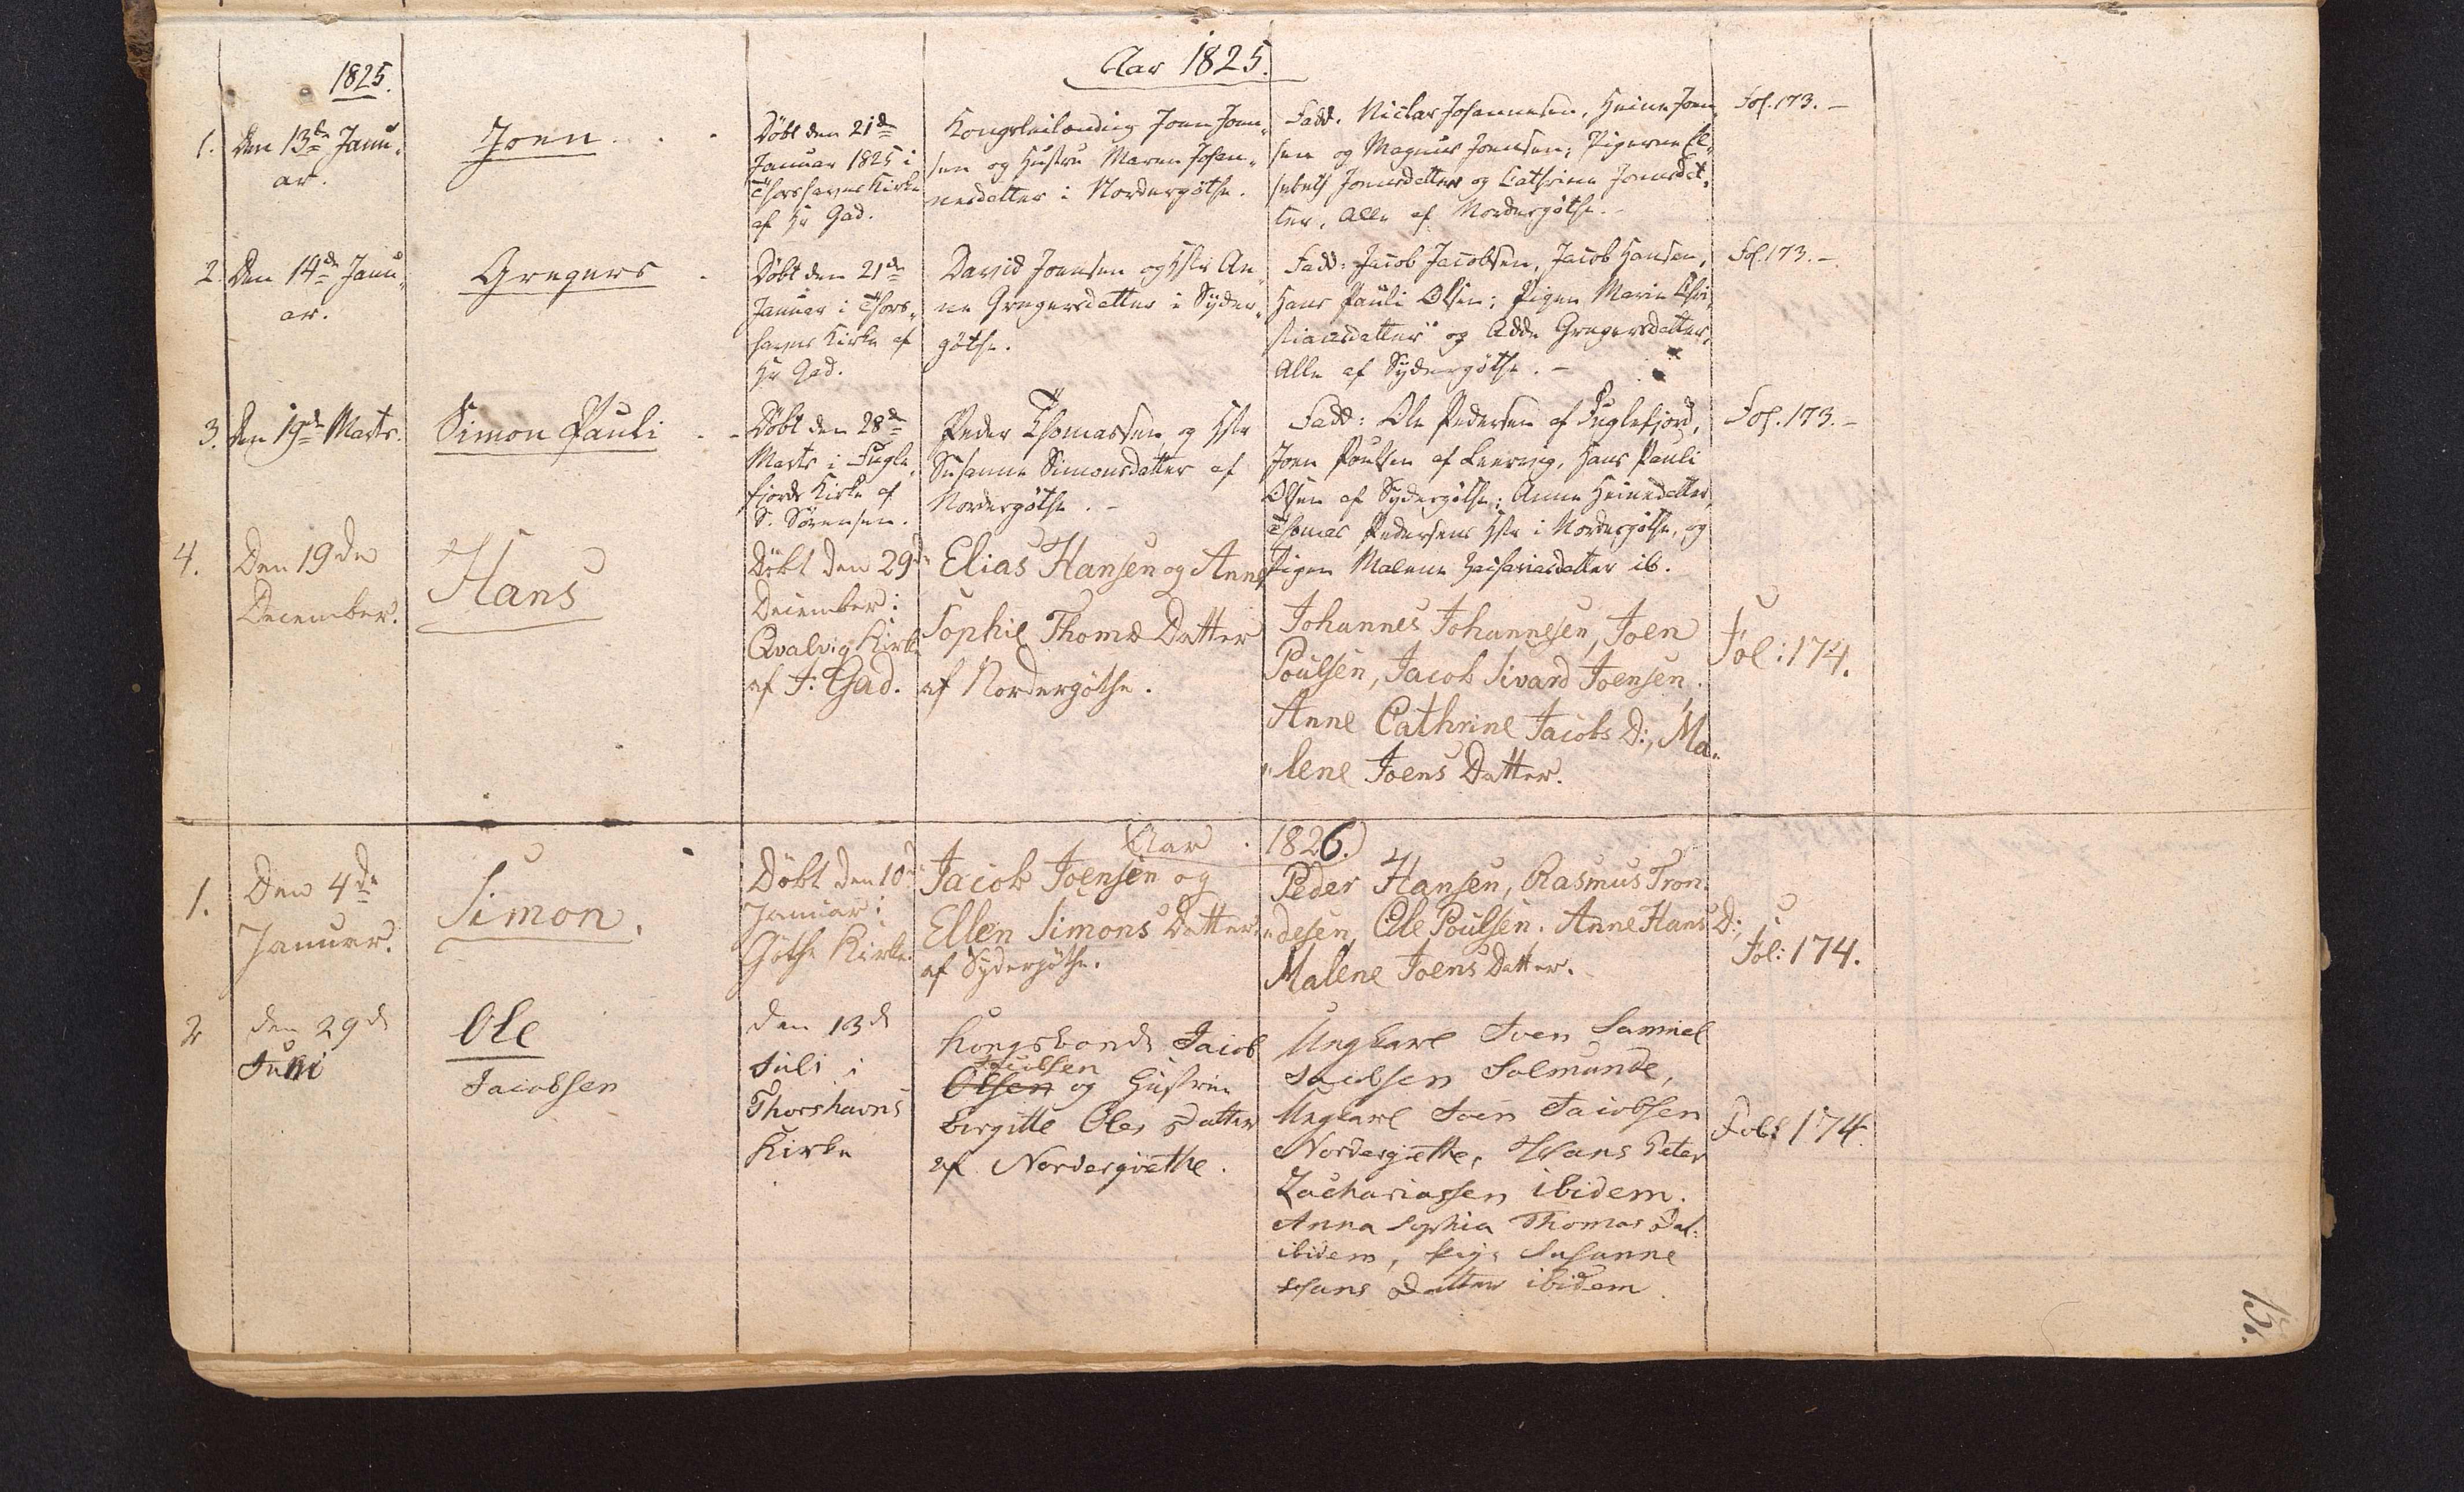 Aar 1825.
1825.
1. Den 13de Janu,,
ar.
Joen
Døbt den 21de
Januar 1825 i
Thorshavns Kirke
af Hr Gad.
Kongsleilænding Joen Joen,,
sen og Hustru Maren Johan,,
nesdatter i Nordergøthe.
Fadd. Niclas Johannesen, Heine Joen,,
sen og Magnus Joensen; Pigerne El,,
sebeth Joensdatter og Cathrine Joensdat,,
ter, Alle af Nordergøthe.
Fol. 173. –
2. Den 14de Janu,,
ar.
Gregers
Døbt den 21de
Januar i Thors,,
havns Kirke af
Hr Gad.
David Joensen og Hstr An,,
ne Gregersdatter i Syder,,
gøthe.
Fadd: Jacob Jacobsen, Jacob Hansen,
Hans Pauli Olsen; Pigen Marie Chri,,
stiansdatter og Adde Gregersdatter,
Alle af Sydergøthe. –
Fol. 173. –
3. Den 19de Marts.
Simon Pauli
Døbt den 28de
Marts i Fugle,,
fjords Kirke af
S. Sørensen.
Peder Thomassen og Hstr
Susanne Simonsdatter af
Nordergøthe. –
Fadd: Ole Pedersen af Fuglefjord,
Joen Poulsen af Leervig, Hans Pauli
Olsen af Sydergøthe; Anne Heinesdatter,
Thomas Pedersens Hstr i Nordergøthe, og
Pigen Malene Zachariasdatter ib.
Fol. 173. –
4. Den 19de
December.
Hans
Døbt den 29de
December i
Qvalvig Kirke
af J. Gad.
Elias Hansen og Anne
Sophie Thomæ Datter
af Nordergøthe.
Johannes Johannesen, Joen
Poulsen, Jacob Sivard Joensen.
Anne Cathrine Jacobs D:, Ma,,
,,lene Joens Datter.
Fol: 174.
Aar 1826.
1. Den 4de
Januar.
Simon.
Døbt den 10de
Januar i
Gøthe Kirke.
Jacob Joensen og
Ellen Simons Datter
af Sydergøthe.
Peder Hansen, Rasmus Tron,,
,,desen, Ole Poulsen. Anne Hans D:,
Malene Joens Datter.
Fol: 174.
2 den 29de
Juni
Ole
Jacobsen
den 13de
Juli i
Thorshavns
Kirke
Kongsbonde Jacob
Jacobsen
Olsen og Hustrue
Birgitte Oles Datter
af Nordergiøthe.
Ungkarl Joen Samuel
Jacobsen Solmunde,
Ungkarl Joen Jacobsen
Nordergiøthe, Hans Peter
Zachariassen ibidem.
Anna Sophia Thomas Dat:
ibidem, pige Susanne
Hans Datter ibidem.
Fol: 174.